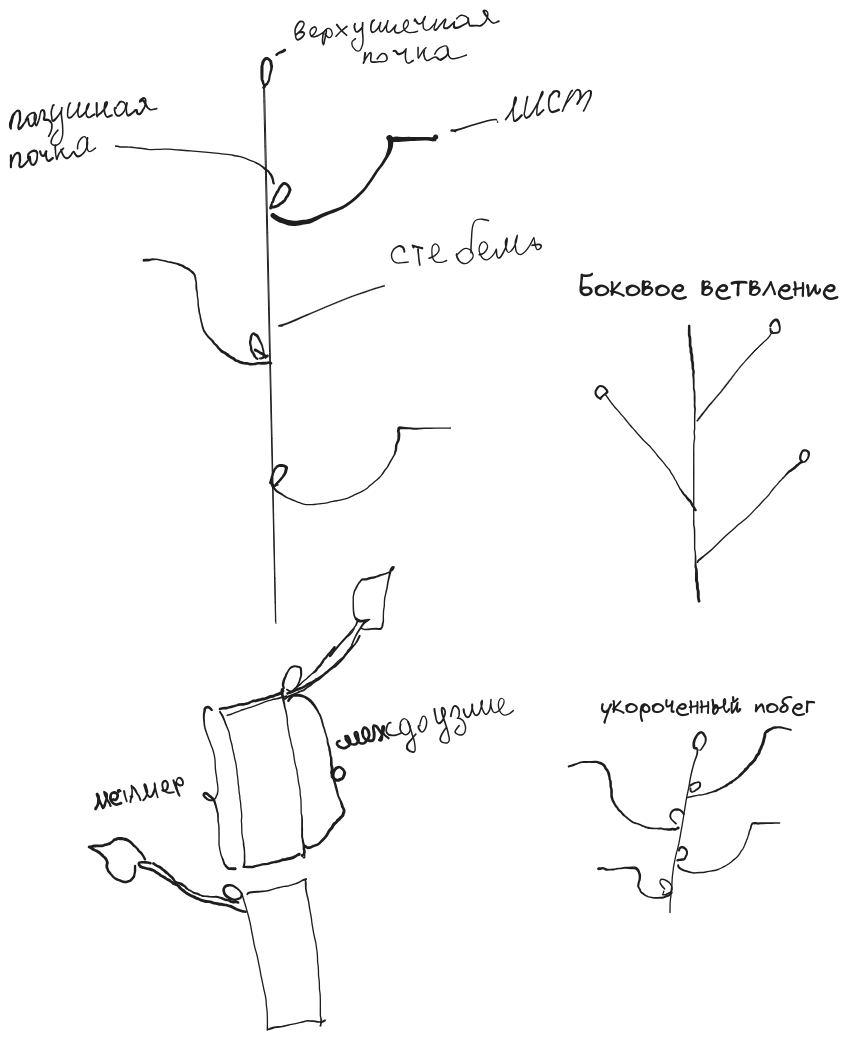 верхушечная
почка
пазушная
почка
лист
стебель
Боковое ветвление
междоузлие
укороченный побег
метамер